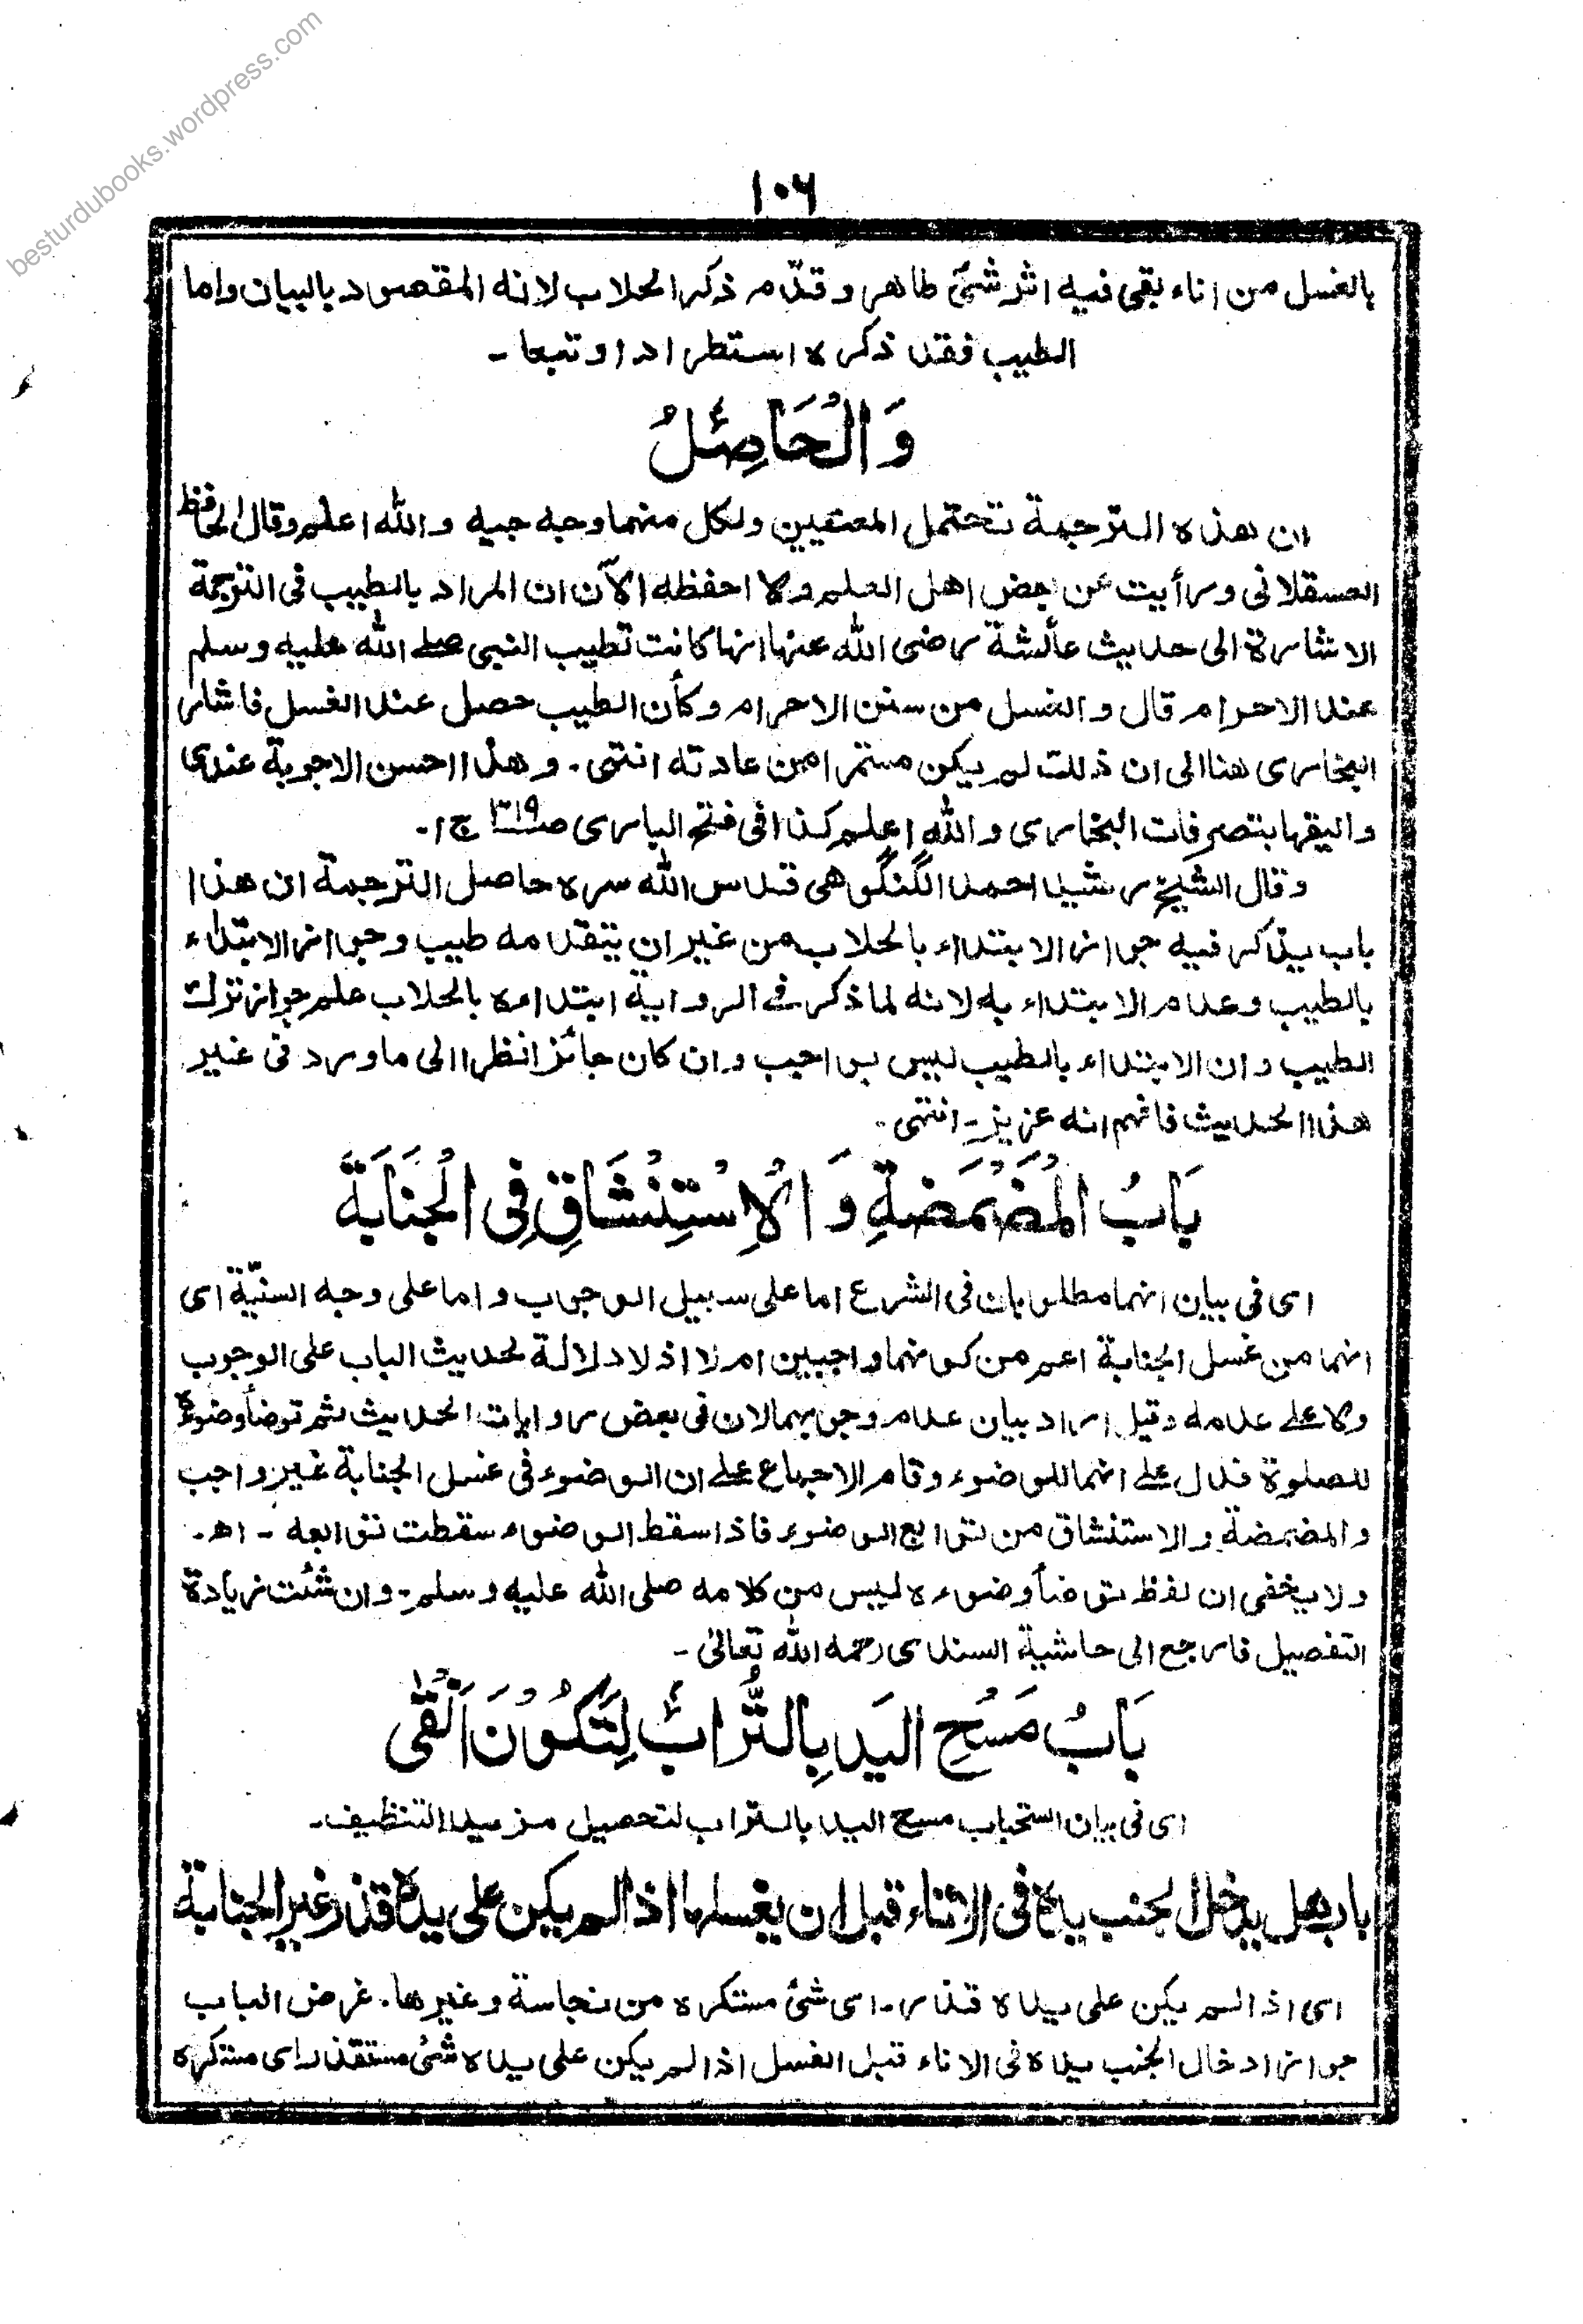 besturdubooks.wordpress.com
۱۰۶
بالغسل من اناء بقى فيه اثر شئ طاهر وقدّم ذكر الحلاب لانه المقصود بالبيان واما
الطيب فقد ذكره استطرادا وتبعا -
وَالْحَاصِلُ
ان هذه الترجمة تحتمل المعنيين ولكل منهما وجه جيه والله اعلم وقال الحافظ
العسقلانى ورأيت عن بعض اهل العلم ولا احفظه الآن ان المراد بالطيب فى الترجمة
الاشارة الى حديث عائشة رضى الله عنها انها كانت تطيب النبى صلے الله عليه وسلم
عند الاحرام قال والغسل من سنن الاحرام وكأن الطيب حصل عند الغسل فاشار
البخارى هنا الى ان ذلك لم يكن مستمرا من عادته انتهى. وهذا احسن الاجوبة عندى
واليقها بتصرفات البخارى والله اعلم كذا فى فتح البارى صـ۳۱۹ ج ا-
وقال الشيخ رشيد احمد الگنگوهى قدس الله سره حاصل الترجمة ان هذا
باب يذكر فيه جواز الابتداء بالحلاب من غير ان يتقدمه طيب وجواز الابتداء
بالطيب وعدم الابتداء به لانه لما ذكر فے الرواية ابتداءه بالحلاب علم جواز ترك
الطيب وان الابتداء بالطيب ليس بواجب وان كان جائزا نظرا الى ما ورد فى غير
هذا الحديث فافهم انه عزيز - انتهى.
بَابُ الْمَضْمَضَةِ وَالْاِسْتِنْشَاقِ فِى الْجَنَابَةِ
اى فى بيان انهما مطلوبان فى الشرع اما على سبيل الوجوب واما على وجه السنّيّة اى
انهما من غسل الجنابة اعم من كونهما واجبين ام لا اذ لا دلالة لحديث الباب على الوجوب
ولا علے عدمه وقيل اراد بيان عدم وجوبهما لان فى بعض روايات الحديث ثم توضأ وضوءه
للصلوة فدل علے انهما للوضوء وقام الاجماع علے ان الوضوء فى غسل الجنابة غير واجب
والمضمضة والاستنشاق من توابع الوضوء فاذا سقط الوضوء سقطت توابعه - اھ -
ولا يخفى ان لفظ توضأ وضوءه ليس من كلامه صلى الله عليه وسلم - وان شئت زيادة
التفصيل فارجع الى حاشية السندى رحمه الله تعالىٰ -
بَابُ مَسْحِ الْيَدِ بِالتُّرَابِ لِتَكُوْنَ اَنْقٰى
اى فى بيان استحباب مسح اليد بالتراب لتحصيل مزيد التنظيف -
باب هل يدخل الجنب يده فى الاناء قبل ان يغسلها اذا لم يكن على يده قذر غير الجنابة
اى اذا لم يكن على يده قذر - اى شئ مستكره من نجاسة وغيرها. غرض الباب
جواز ادخال الجنب يده فى الاناء قبل الغسل اذا لم يكن على يده شئ مستقذر اى مستكره